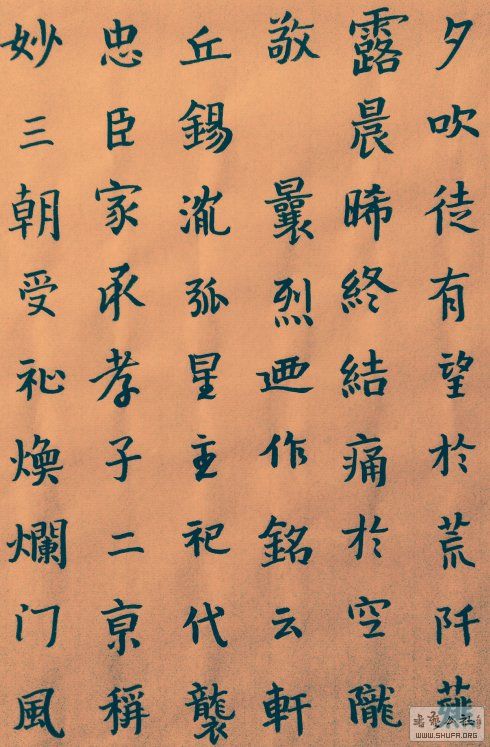 夕吹徒有望於荒阡
露晨晞終結痛於空隴
敬 曩烈迺作銘云軒
丘錫胤弧星主祀代襲
忠臣家承孝子二亰稱
妙三朝受祉煥爛门風
书艺公社
WWW.SHUFA.ORG